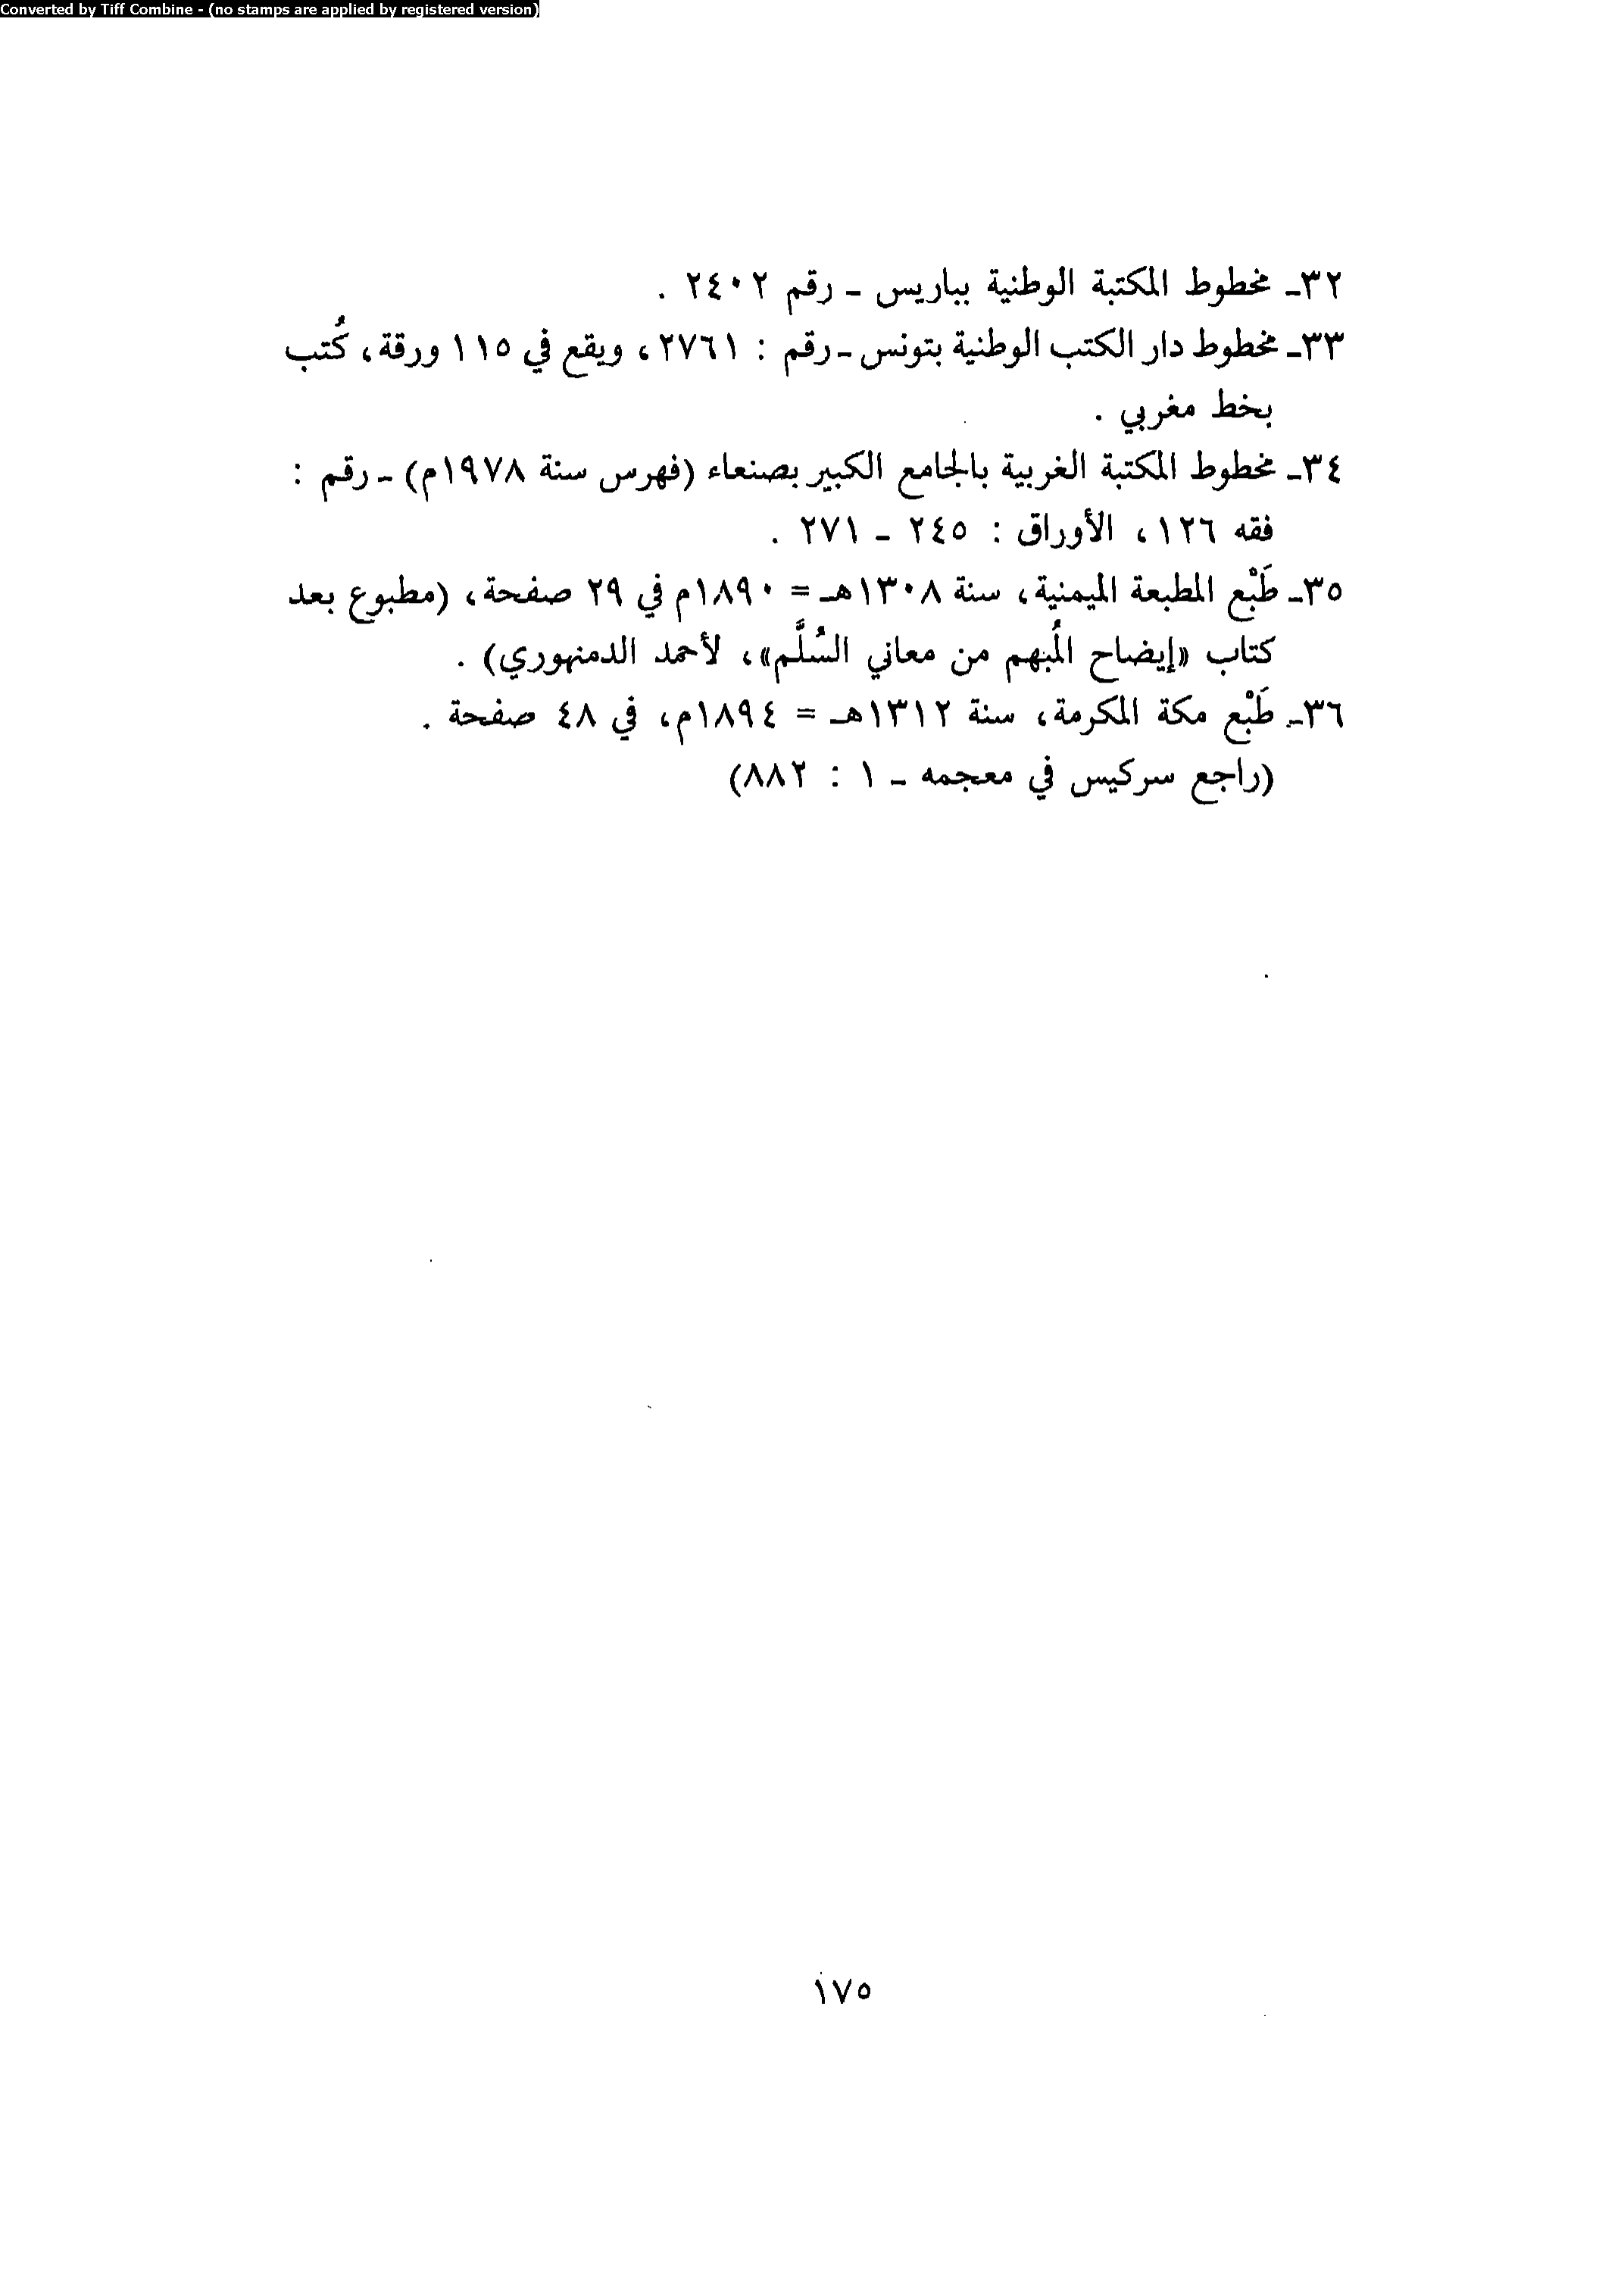 Converted by Tiff Combine - (no stamps are applied by registered version)
٣٢ـ مخطوط المكتبة الوطنية بباريس ـ رقم ٢٤٠٢ .
٣٣ـ مخطوط دار الكتب الوطنية بتونس ـ رقم : ٢٧٦١، ويقع في ١١٥ ورقة، كُتب
بخط مغربي .
٣٤ـ مخطوط المكتبة الغربية بالجامع الكبير بصنعاء (فهرس سنة ١٩٧٨م) ـ رقم :
فقه ١٢٦، الأوراق : ٢٤٥ ـ ٢٧١ .
٣٥ـ طَبْع المطبعة الميمنية، سنة ١٣٠٨هـ = ١٨٩٠م في ٢٩ صفحة، (مطبوع بعد
كتاب «إيضاح المُبهم من معاني السُلَّم»، لأحمد الدمنهوري) .
٣٦ـ طَبْع مكة المكرمة، سنة ١٣١٢هـ = ١٨٩٤م، في ٤٨ صفحة .
(راجع سركيس في معجمه ـ ١ : ٨٨٢)
١٧٥